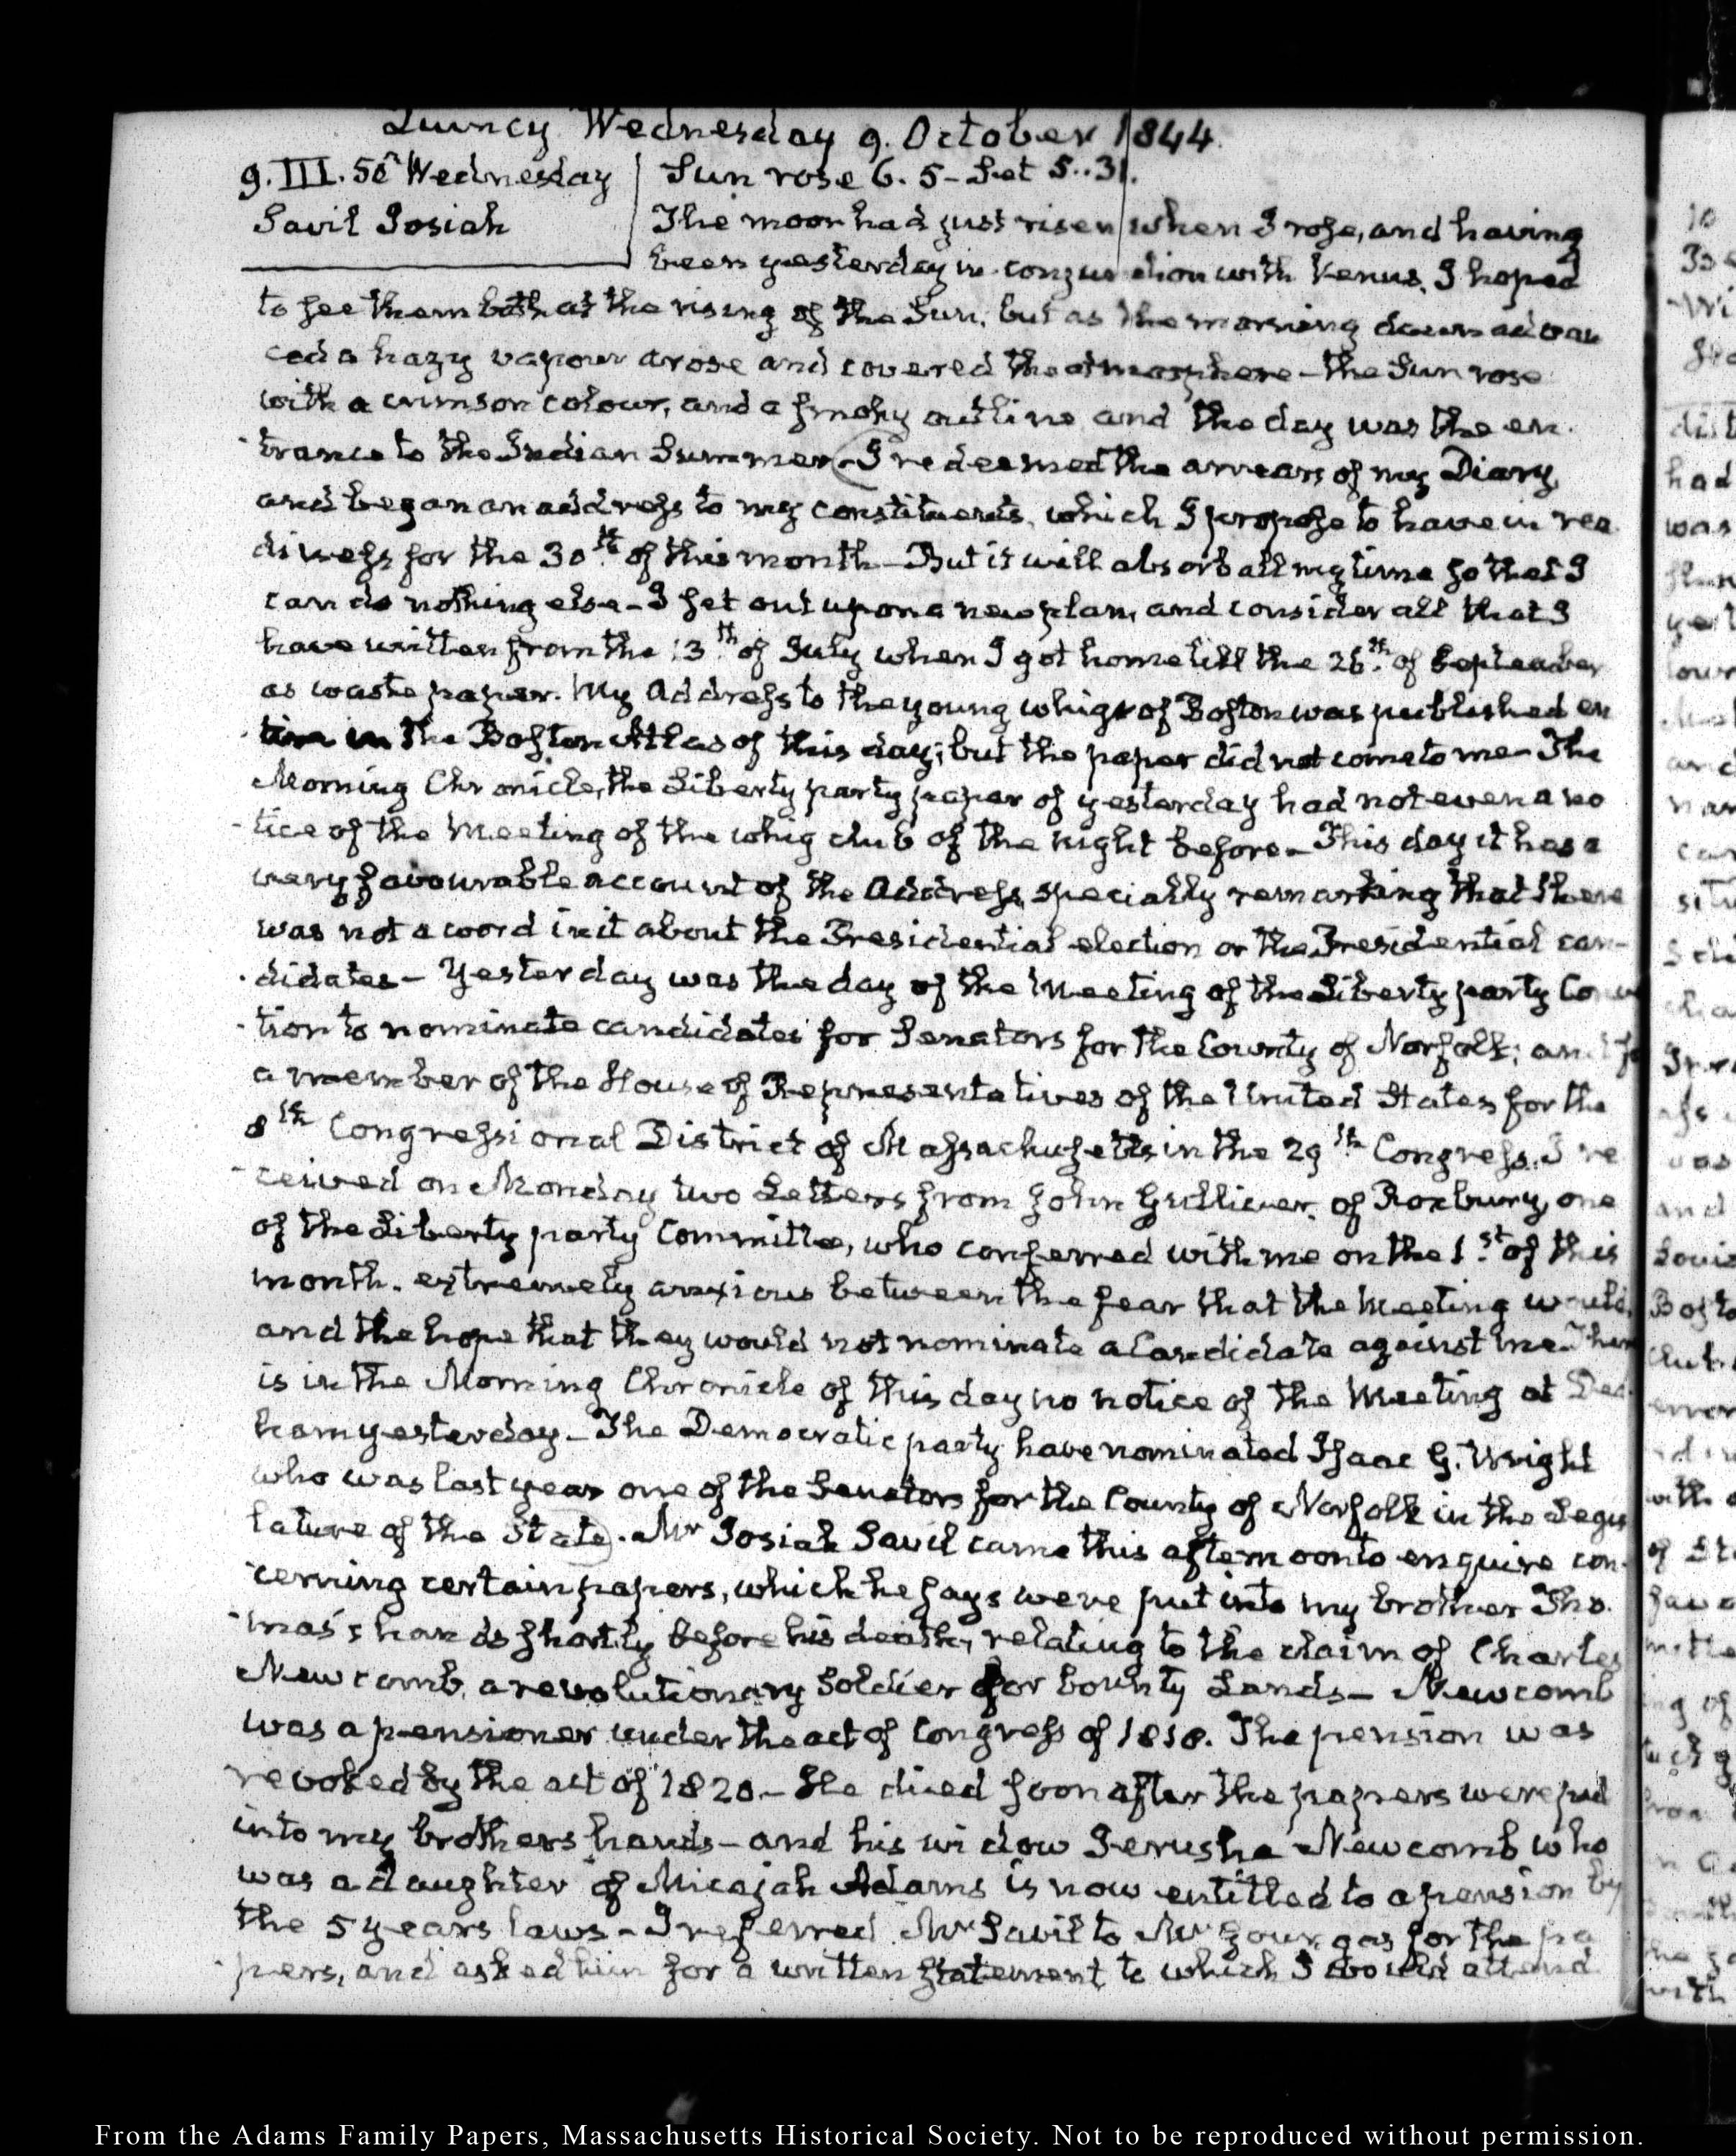 Quincy Wednesday 9. October 1844.
9. III. 50. Wednesday
Savil Josiah
Sun rose 6. 5 - Set 5..31.
The moon had just risen when I rose, and having
been yesterday in conjunction with Venus, I hoped
to see them both at the rising of the Sun; but as the morning dawn advan
ced a hazy vapour arose and covered the atmosphere - the Sun rose
with a crimson colour, and a smoky outline and the day was the en-
-trance to the Indian Summer - I redeemed the arrears of my Diary,
and began an address to my constituents, which I propose to have in rea
diness for the 30th of this month - But it will absorb all my time so that I
can do nothing else - I set out upon a new plan, and consider all that I
have written from the 13th of July when I got home till the 26th of September
as waste paper. My Address to the young whigs of Boston was published en
-tire in the Boston Atlas of this day; but the paper did not come to me - The
Morning Chronicle, the Liberty party paper of yesterday had not even a no
-tice of the Meeting of the whig club of the night before - This day it has a
very favourable account of the Address, specially remarking that there
was not a word in it about the Presidential election or the Presidential can-
-didates - Yesterday was the day of the Meeting of the Liberty party Conven
-tion to nominate candidates for Senators for the County of Norfolk; and for
a member of the House of Representatives of the United States for the
8th Congressional District of Massachusetts in the 29th Congress. I re
-ceived on Monday two Letters from John Gulliver, of Roxbury, one
of the Liberty party Committee, who conferred with me on the 1st of this
month. extremely anxious between the fear that the Meeting would,
and the hope that they would not nominate a Candidate against me. There
is in the Morning Chronicle of this day no notice of the Meeting at Ded
ham yesterday - The Democratic party have nominated Isaac G. Wright
who was last year one of the Senators for the County of Norfolk in the Legis
lature of the State. Mr Josiah Savil came this afternoon to enquire con-
-cerning certain papers, which he says were put into my brother Tho-
-mas's hands shortly before his death, relating to the claim of Charles
Newcomb, a revolutionary Soldier for bounty Lands - Newcomb
was a pensioner under the act of Congress of 1818. The pension was
revoked by the act of 1820. - He died soon after the papers were put
into my brothers hands - and his widow Jerusha Newcomb who
was a daughter of Micajah Adams is now entitled to a pension by
the 5 years laws - I referred Mr Savil to Mr Gourgas for the pa
-pers, and asked him for a written statement to which I would attend.
From the Adams Family Papers, Massachusetts Historical Society. Not to be reproduced without permission.